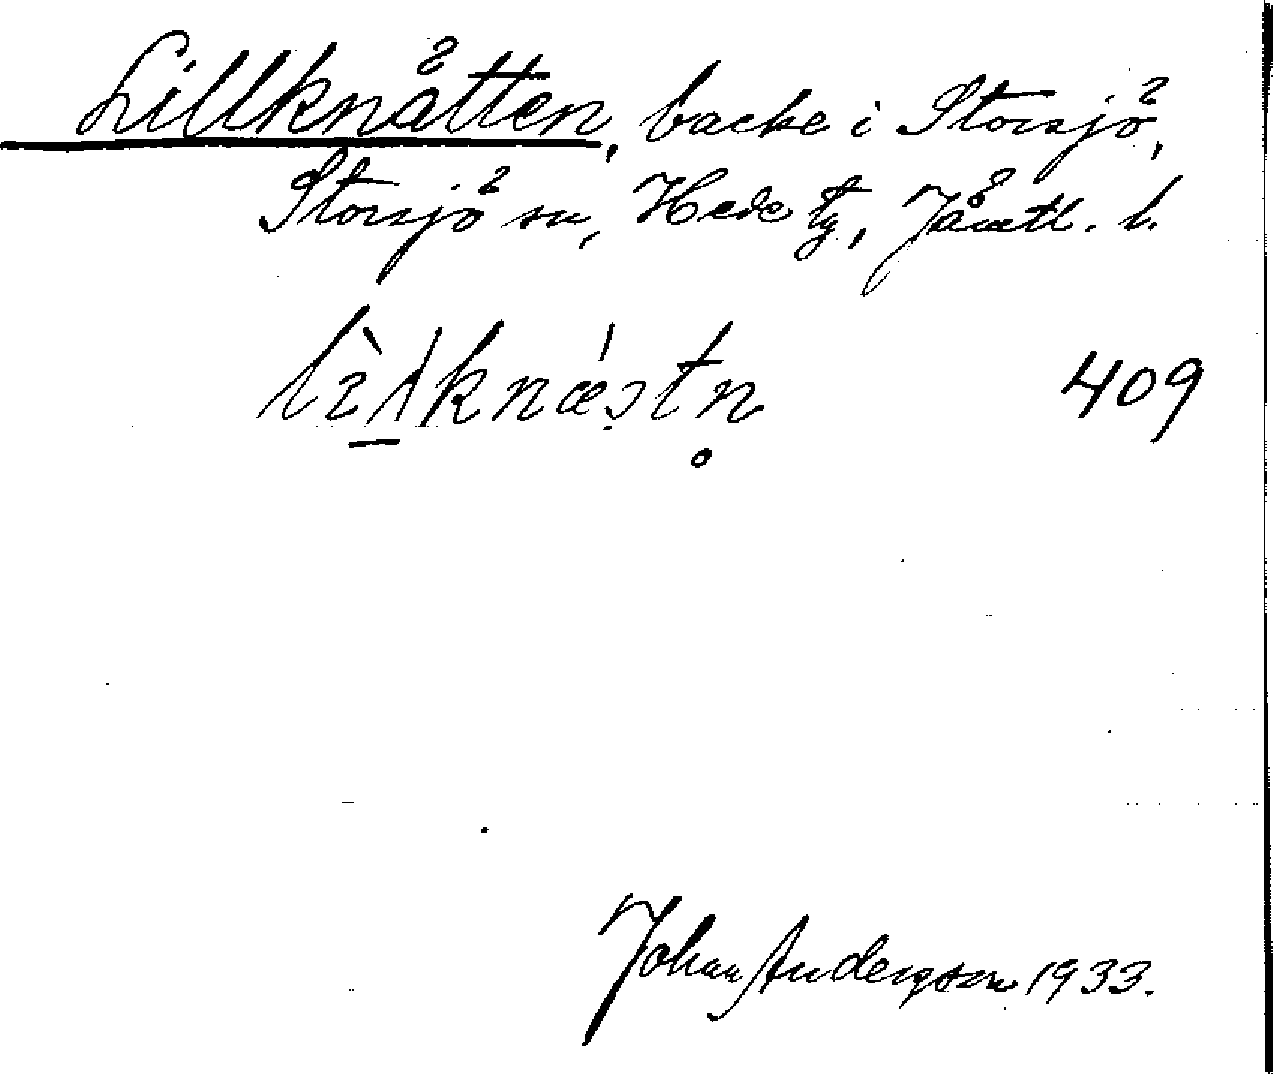 Lillknätten, backe i Storsjö,
Storsjö sn, Hede tg, Jämtl. l.
409
Johan Andersson 1933.